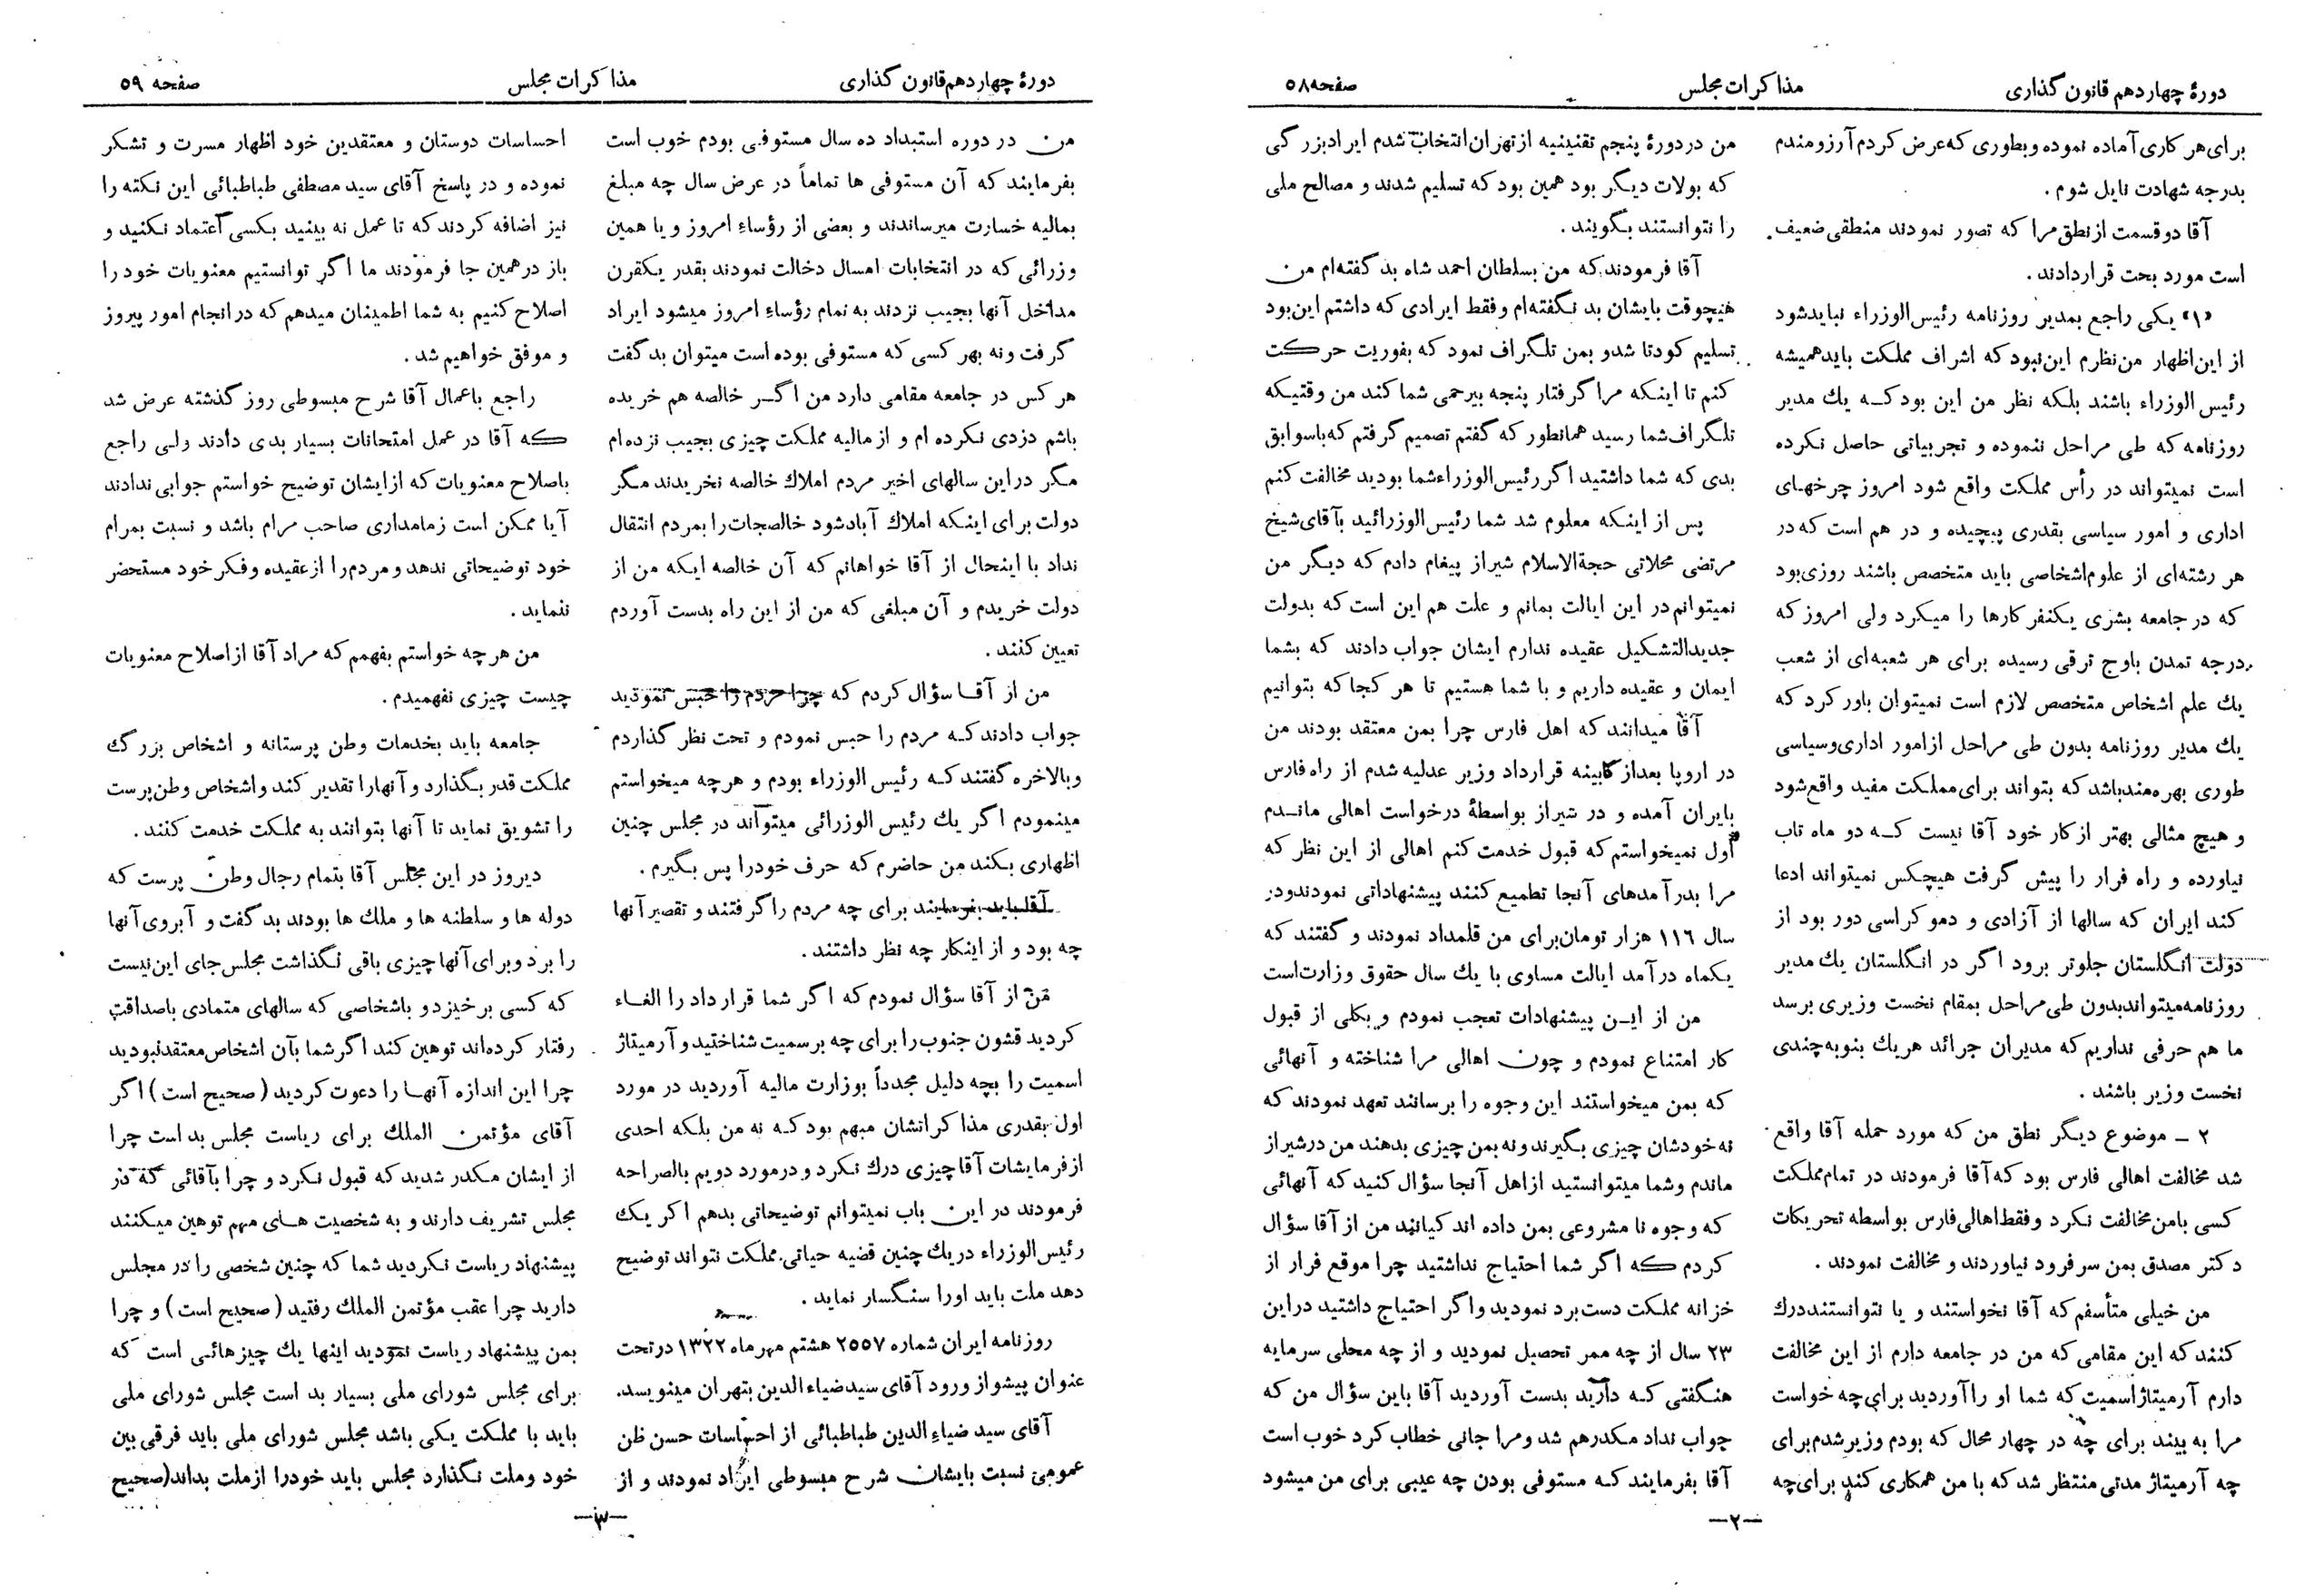 دورهٔ چهاردهم قانون گذاری
مذاکرات مجلس
صفحه ۵۸
برای هر کاری آماده نموده و بطوری که عرض کردم آرزومندم
بدرجه شهادت نایل شوم .
آقا دو قسمت از نطق مرا که تصور نمودند منطقی ضعیف
است مورد بحث قرار دادند .
«۱» یکی راجع بمدیر روزنامه رئیس الوزراء نباید شود
از این اظهار من نظرم این نبود که اشراف مملکت باید همیشه
رئیس الوزراء باشند بلکه نظر من این بود که یك مدیر
روزنامه که طی مراحل ننموده و تجربیاتی حاصل نکرده
است نمیتواند در رأس مملکت واقع شود امروز چرخهای
اداری و امور سیاسی بقدری پیچیده و در هم است که در
هر رشته‌ای از علوم اشخاصی باید متخصص باشند روزی بود
که در جامعه بشری یکنفر کارها را میکرد ولی امروز که
درجه تمدن باوج ترقی رسیده برای هر شعبه‌ای از شعب
یك علم اشخاص متخصص لازم است نمیتوان باور کرد که
یك مدیر روزنامه بدون طی مراحل از امور اداری و سیاسی
طوری بهره‌مند باشد که بتواند برای مملکت مفید واقع شود
و هیچ مثالی بهتر از کار خود آقا نیست که دو ماه تاب
نیاورده و راه فرار را پیش گرفت هیچکس نمیتواند ادعا
کند ایران که سالها از آزادی و دموکراسی دور بود از
دولت انگلستان جلوتر برود اگر در انگلستان یك مدیر
روزنامه میتواند بدون طی مراحل بمقام نخست وزیری برسد
ما هم حرفی نداریم که مدیران جرائد هر یك بنوبه چندی
نخست وزیر باشند .
۲ ـ موضوع دیگر نطق من که مورد حمله آقا واقع
شد مخالفت اهالی فارس بود که آقا فرمودند در تمام مملکت
کسی با من مخالفت نکرد و فقط اهالی فارس بواسطه تحریکات
دکتر مصدق بمن سر فرود نیاوردند و مخالفت نمودند .
من خیلی متأسفم که آقا نخواستند و یا نتوانستند درك
کنند که این مقامی که من در جامعه دارم از این مخالفت
دارم آرمیتاژ اسمیت که شما او را آوردید برای چه خواست
مرا به بیند برای چه در چهار محال که بودم وزیر شدم برای
چه آرمیتاژ مدتی منتظر شد که با من همکاری کند برای چه
من در دورهٔ پنجم تقنینیه از تهران انتخاب شدم ایراد بزرگی
که بولات دیگر بود همین بود که تسلیم شدند و مصالح ملی
را نتوانستند بگویند .
آقا فرمودند که من بسلطان احمد شاه بد گفته‌ام من
هیچوقت بایشان بد نگفته‌ام و فقط ایرادی که داشتم این بود
تسلیم کودتا شد و بمن تلگراف نمود که بفوریت حرکت
کنم تا اینکه مرا گرفتار پنجه بیرحمی شما کند من وقتیکه
تلگراف شما رسید همانطور که گفتم تصمیم گرفتم که با سوابق
بدی که شما داشتید اگر رئیس الوزراء شما بودید مخالفت کنم
پس از اینکه معلوم شد شما رئیس الوزرائید بآقای شیخ
مرتضی محلاتی حجةالاسلام شیراز پیغام دادم که دیگر من
نمیتوانم در این ایالت بمانم و علت هم این است که بدولت
جدیدالتشکیل عقیده ندارم ایشان جواب دادند که بشما
ایمان و عقیده داریم و با شما هستیم تا هر کجا که بتوانیم
آقا میدانند که اهل فارس چرا بمن معتقد بودند من
در اروپا بعد از کابینه قرارداد وزیر عدلیه شدم از راه فارس
بایران آمده و در شیراز بواسطهٔ درخواست اهالی ماندم
اول نمیخواستم که قبول خدمت کنم اهالی از این نظر که
مرا بدرآمدهای آنجا تطمیع کنند پیشنهاداتی نمودند و در
سال ۱۱۶ هزار تومان برای من قلمداد نمودند و گفتند که
یکماه درآمد ایالت مساوی با یك سال حقوق وزارت است
من از این پیشنهادات تعجب نمودم و بکلی از قبول
کار امتناع نمودم و چون اهالی مرا شناخته و آنهائی
که بمن میخواستند این وجوه را برسانند تعهد نمودند که
نه خودشان چیزی بگیرند و نه بمن چیزی بدهند من در شیراز
ماندم و شما میتوانستید از اهل آنجا سؤال کنید که آنهائی
که وجوه نا مشروعی بمن داده اند کیانند من از آقا سؤال
کردم که اگر شما احتیاج نداشتید چرا موقع فرار از
خزانه مملکت دست برد نمودید و اگر احتیاج داشتید در این
۲۳ سال از چه ممر تحصیل نمودید و از چه محلی سرمایه
هنگفتی که دارید بدست آوردید آقا باین سؤال من که
جواب نداد مکدر هم شد و مرا جانی خطاب کرد خوب است
آقا بفرمایند که مستوفی بودن چه عیبی برای من میشود
ـ۲ـ
دورهٔ چهاردهم قانون گذاری
مذاکرات مجلس
صفحه ۵۹
من در دوره استبداد ده سال مستوفی بودم خوب است
بفرمایند که آن مستوفی ها تماماً در عرض سال چه مبلغ
بمالیه خسارت میرساندند و بعضی از رؤساء امروز و یا همین
وزرائی که در انتخابات امسال دخالت نمودند بقدر یکقرن
مداخل آنها بجیب نزدند به تمام رؤساء امروز میشود ایراد
گرفت و نه بهر کسی که مستوفی بوده است میتوان بد گفت
هر کس در جامعه مقامی دارد من اگر خالصه هم خریده
باشم دزدی نکرده ام و از مالیه مملکت چیزی بجیب نزده ام
مگر در این سالهای اخیر مردم املاك خالصه نخریدند مگر
دولت برای اینکه املاك آباد شود خالصجات را بمردم انتقال
نداد با اینحال از آقا خواهانم که آن خالصه ایکه من از
دولت خریدم و آن مبلغی که من از این راه بدست آوردم
تعیین کنند .
من از آقا سؤال کردم که چرا مردم را حبس نمودید
جواب دادند که مردم را حبس نمودم و تحت نظر گذاردم
و بالاخره گفتند که رئیس الوزراء بودم و هر چه میخواستم
مینمودم اگر یك رئیس الوزرائی میتواند در مجلس چنین
اظهاری بکند من حاضرم که حرف خود را پس بگیرم .
آقا باید بفرمایند برای چه مردم را گرفتند و تقصیر آنها
چه بود و از اینکار چه نظر داشتند .
من از آقا سؤال نمودم که اگر شما قرار داد را الغاء
کردید قشون جنوب را برای چه برسمیت شناختید و آرمیتاژ
اسمیت را بچه دلیل مجدداً بوزارت مالیه آوردید در مورد
اول بقدری مذاکراتشان مبهم بود که نه من بلکه احدی
از فرمایشات آقا چیزی درك نکرد و در مورد دویم بالصراحه
فرمودند در این باب نمیتوانم توضیحاتی بدهم اگر یک
رئیس الوزراء در یك چنین قضیه حیاتی مملکت نتواند توضیح
دهد ملت باید اورا سنگسار نماید .
روزنامه ایران شماره ۲۵۵۷ هشتم مهرماه ۱۳۲۲ در تحت
عنوان پیشواز ورود آقای سید ضیاء الدین بتهران مینویسد.
آقای سید ضیاء الدین طباطبائی از احساسات حسن ظن
عمومی نسبت بایشان شرح مبسوطی ایراد نمودند و از
احساسات دوستان و معتقدین خود اظهار مسرت و تشکر
نموده و در پاسخ آقای سید مصطفی طباطبائی این نکته را
نیز اضافه کردند که تا عمل نه بینید بکسی اعتماد نکنید و
باز در همین جا فرمودند ما اگر توانستیم معنویات خود را
اصلاح کنیم به شما اطمینان میدهم که در انجام امور پیروز
و موفق خواهیم شد .
راجع باعمال آقا شرح مبسوطی روز گذشته عرض شد
که آقا در عمل امتحانات بسیار بدی دادند ولی راجع
باصلاح معنویات که از ایشان توضیح خواستم جوابی ندادند
آیا ممکن است زمامداری صاحب مرام باشد و نسبت بمرام
خود توضیحاتی ندهد و مردم را از عقیده و فکر خود مستحضر
ننماید .
من هر چه خواستم بفهمم که مراد آقا از اصلاح معنویات
چیست چیزی نفهمیدم .
جامعه باید بخدمات وطن پرستانه و اشخاص بزرگ
مملکت قدر بگذارد و آنها را تقدیر کند و اشخاص وطن پرست
را تشویق نماید تا آنها بتوانند به مملکت خدمت کنند .
دیروز در این مجلس آقا بتمام رجال وطن پرست که
دوله ها و سلطنه ها و ملك ها بودند بد گفت و آبروی آنها
را برد و برای آنها چیزی باقی نگذاشت مجلس جای این نیست
که کسی برخیزد و باشخاصی که سالهای متمادی با صداقت
رفتار کرده‌اند توهین کند اگر شما بآن اشخاص معتقد نبودید
چرا این اندازه آنها را دعوت کردید (صحیح است) اگر
آقای مؤتمن الملك برای ریاست مجلس بد است چرا
از ایشان مکدر شدید که قبول نکرد و چرا بآقائی که در
مجلس تشریف دارند و به شخصیت های مهم توهین میکنند
پیشنهاد ریاست نکردید شما که چنین شخصی را در مجلس
دارید چرا عقب مؤتمن الملك رفتید (صحیح است) و چرا
بمن پیشنهاد ریاست نمودید اینها یك چیزهائی است که
برای مجلس شورای ملی بسیار بد است مجلس شورای ملی
باید با مملکت یکی باشد مجلس شورای ملی باید فرقی بین
خود و ملت نگذارد مجلس باید خود را از ملت بداند (صحیح
ـ۳ـ